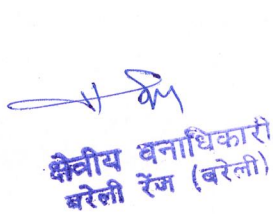 क्षेत्रीय वनाधिकारी
बरेली रेंज (बरेली)